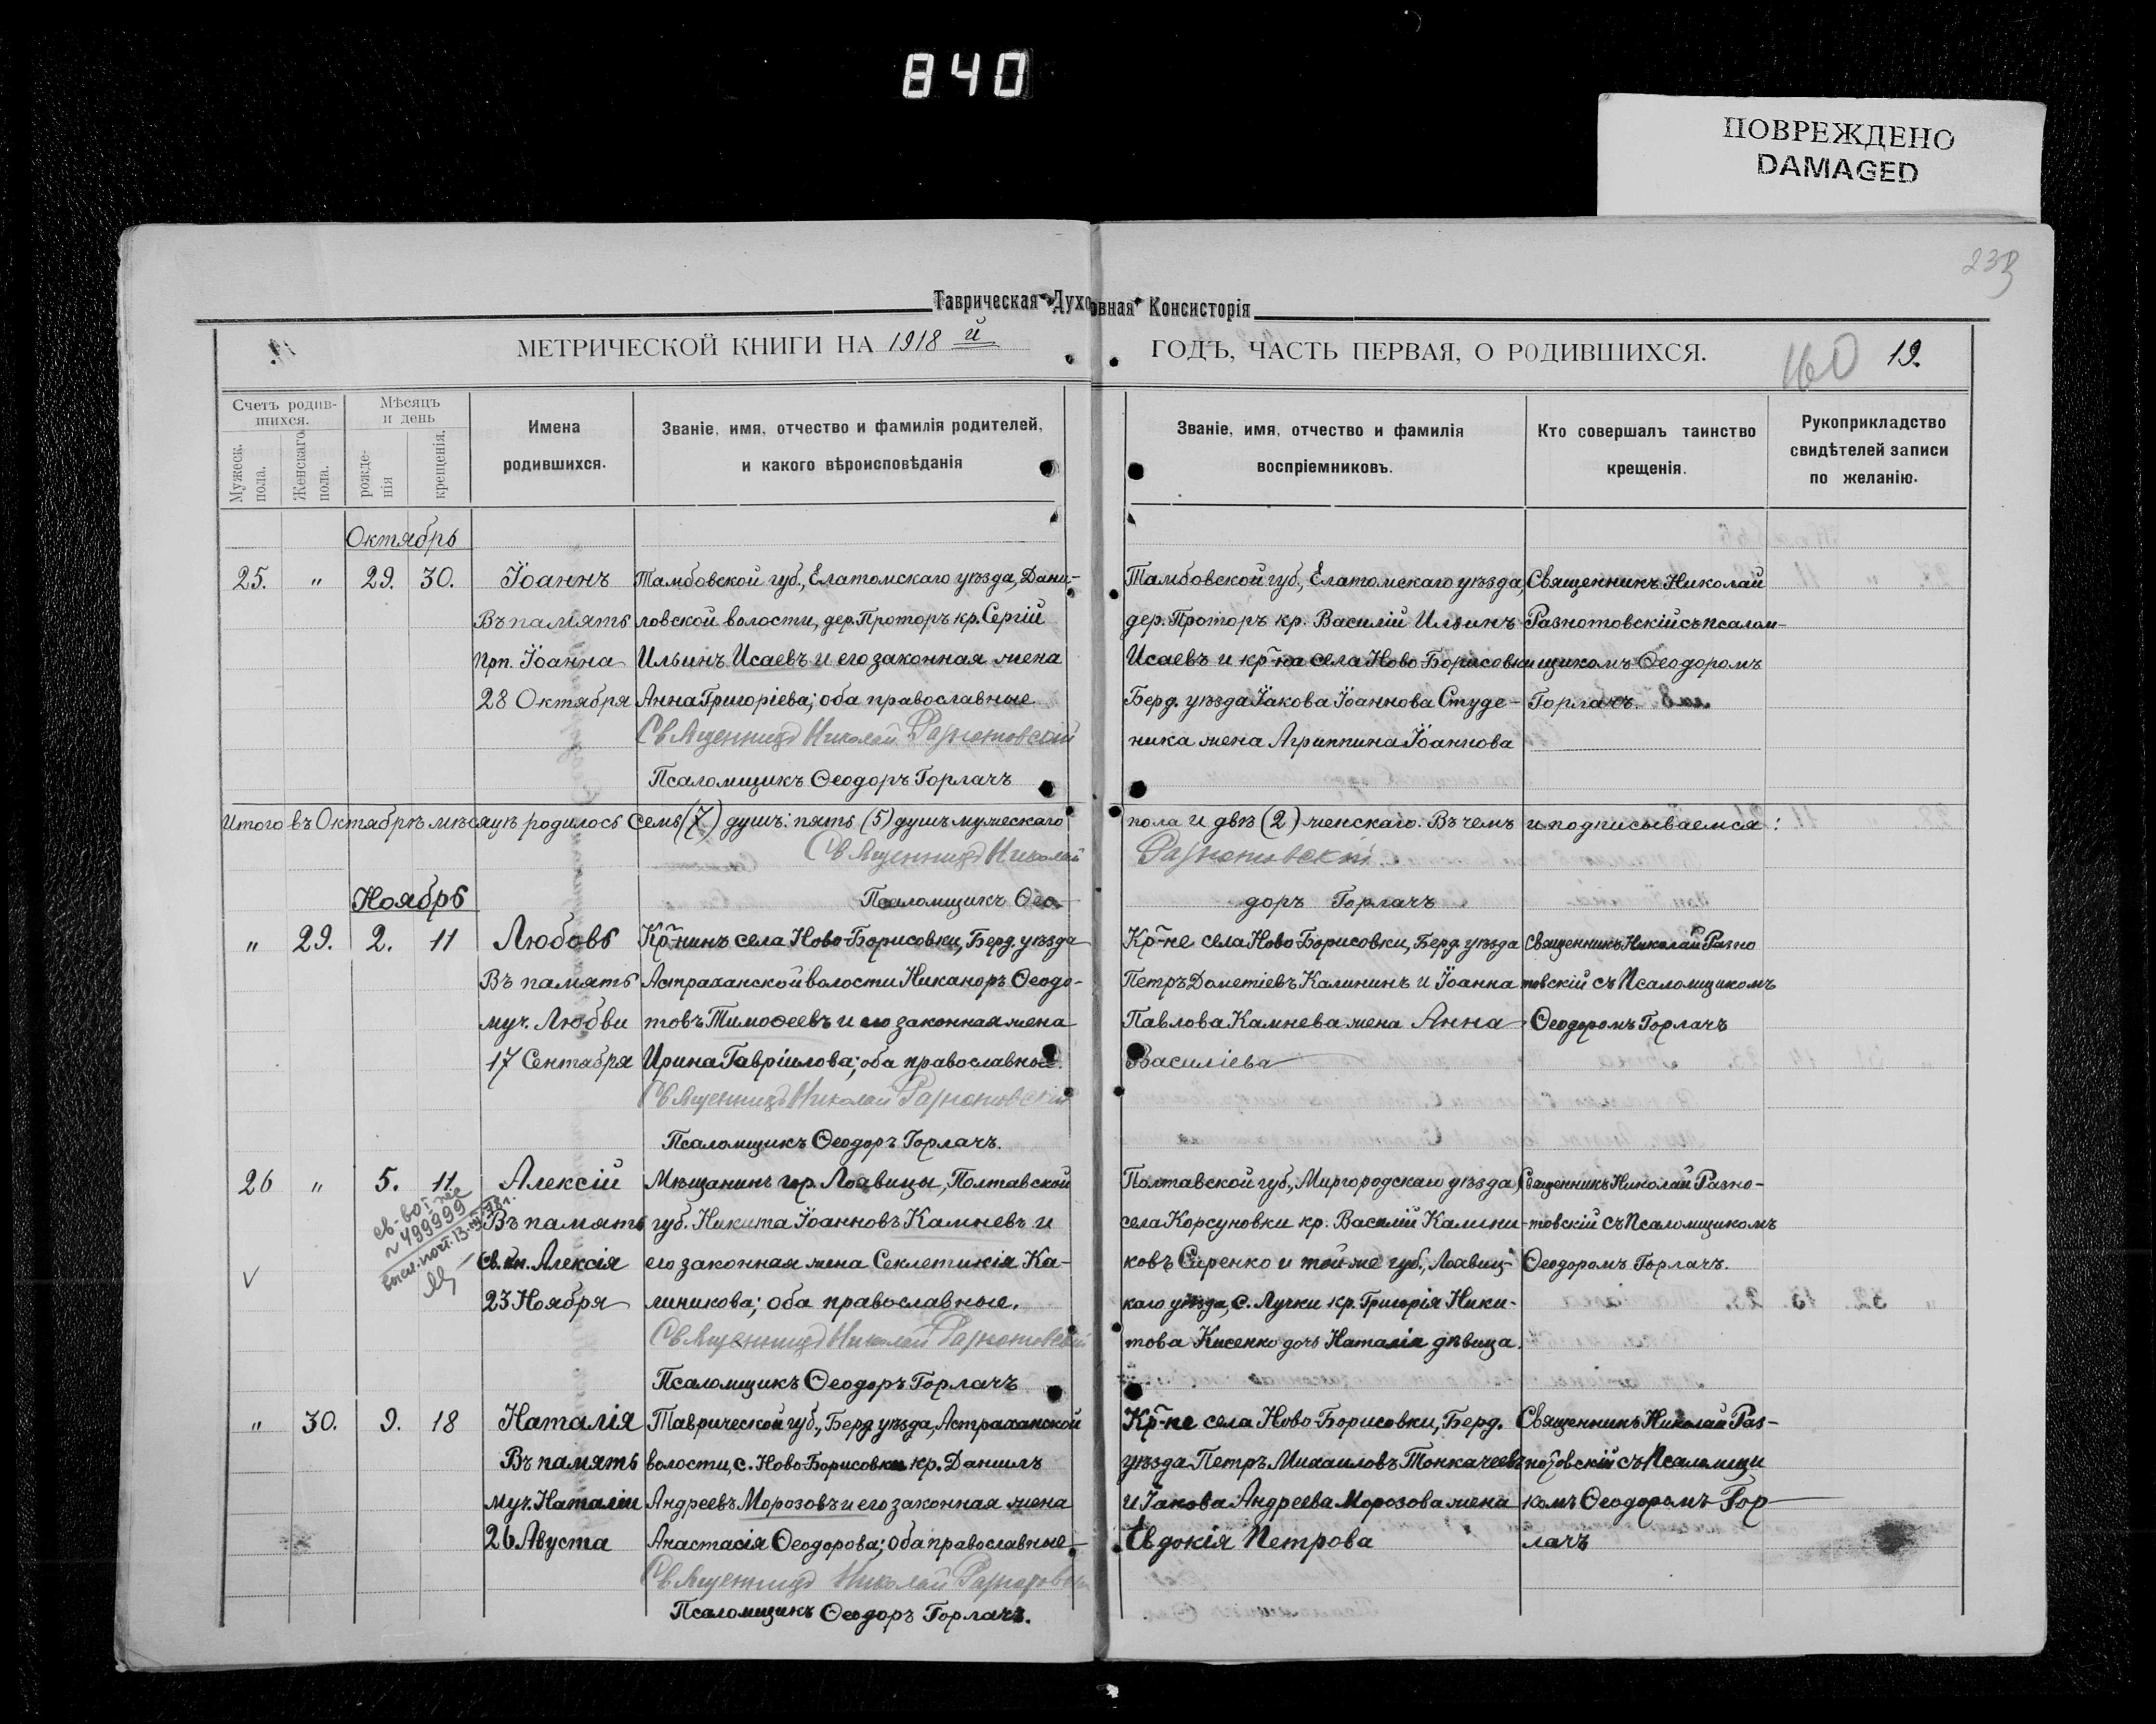 840
ПОВРЕЖДЕНО
DAMAGED
Таврическая Духовная Консисторія
МЕТРИЧЕСКОЙ КНИГИ НА 1918 й
ГОДЪ, ЧАСТЬ ПЕРВАЯ, О РОДИВШИХСЯ.
160
19.
Счетъ родив-
шихся.
Мужеск. пола.
Женскаго пола.
Мѣсяцъ
и день
рожде-
нія
крещенія.
Имена
родившихся.
Званіе, имя, отчество и фамилія родителей,
и какого вѣроисповѣданія
Званіе, имя, отчество и фамилія
воспріемниковъ.
Кто совершалъ таинство
крещенія.
Рукоприкладство
свидѣтелей записи
по желанію.
Октябрь
25. " 29. 30. Іоаннъ
Въ память
прп. Іоанна
28 Октября
Тамбовской губ., Елатомскаго уѣзда, Дани-
ловской волости, дер. Проторъ кр. Сергій
Ильинъ Исаевъ и его законная жена
Анна Григоріева; оба православные
Священникъ Николай Разнотовскій
Псаломщикъ Ѳеодоръ Горлачъ
Тамбовской губ., Елатомскаго уѣзда,
дер. Проторъ кр. Василій Ильинъ
Исаевъ и кр-на села Ново Борисовки
Берд. уѣзда Іакова Іоаннова Студе-
ника жена Агриппина Іоаннова
Священникъ Николай
Разнотовскій съ псалом-
щикомъ Ѳеодоромъ
Горлачъ.
Итого въ Октябрѣ мѣсяцѣ родилось семь (7) душъ: пять (5) душъ мужескаго пола и двѣ (2) женскаго. Въ чемъ и подписываемся:
Священникъ Николай Разнотовскій
Псаломщикъ Ѳеодоръ Горлачъ
Ноябрь
" 29. 2. 11 Любовь
Въ память
муч. Любви
17 Сентября
Кр-нинъ села Ново-Борисовки, Берд. уѣзда
Астраханской волости Никаноръ Ѳеодо-
товъ Тимоѳеевъ и его законная жена
Ирина Гавріилова; оба православные.
Священникъ Николай Разнотовскій
Псаломщикъ Ѳеодоръ Горлачъ.
Кр-не села Ново-Борисовки, Берд. уѣзда
Петръ Дометіевъ Калининъ и Іоанна
Павлова Камнева жена Анна
Василіева
Священникъ Николай Разно
товскій съ Псаломщикомъ
Ѳеодоромъ Горлачъ
26 " 5. 11. Алексій
Въ память
св. кн. Алексія
23 Ноября
св-во
№ 499999
Мѣщанинъ гор. Лохвицы, Полтавской
губ. Никита Іоанновъ Камневъ и
его законная жена Секлетикія Ка-
линикова; оба православные.
Священникъ Николай Разнотовскій
Псаломщикъ Ѳеодоръ Горлачъ
Полтавской губ., Миргородскаго уѣзда,
села Корсуновки кр. Василій Калини-
ковъ Сиренко и той-же губ., Лохвиц-
каго уѣзда, с. Лучки кр. Григорія Ники-
това Кисенко дочь Наталія дѣвица.
Священникъ Николай Разно-
товскій съ Псаломщикомъ
Ѳеодоромъ Горлачъ.
" 30. 9. 18 Наталія
Въ память
муч. Наталіи
26 Августа
Таврической губ., Берд. уѣзда, Астраханской
волости, с. Ново-Борисовки кр. Даниилъ
Андреевъ Морозовъ и его законная жена
Анастасія Ѳеодорова; оба православные
Священникъ Николай Разнотовскій
Псаломщикъ Ѳеодоръ Горлачъ.
Кр-не села Ново-Борисовки, Берд.
уѣзда Петръ Михаиловъ Тонкачеевъ
и Іакова Андреева Морозова жена
Евдокія Петрова
Священникъ Николай Раз-
нотовскій съ Псаломщи
комъ Ѳеодоромъ Гор-
лачъ